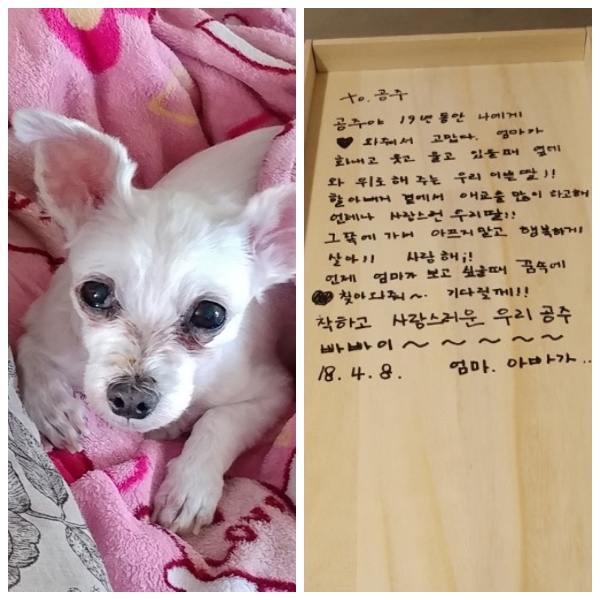 to. 공주
공주야 19년 동안 나에게
♥ 와줘서 고맙다. 엄마가
화내고 웃고 울고 있을때 옆에
와 위로해 주는 우리 이쁜 딸!!
할아버지 곁에서 애교를 많이 하고해
언제나 사랑스런 우리딸!!
그 뚝에 가서 아프지말고 행복하게
살아!! 사랑해!!
언제 엄마가 보고 싶을때 꿈속에
찾아와줘~. 기다릴께!!
착하고 사랑스러운 우리 공주
빠빠이~~~~~
18. 4. 8. 엄마. 아빠가..